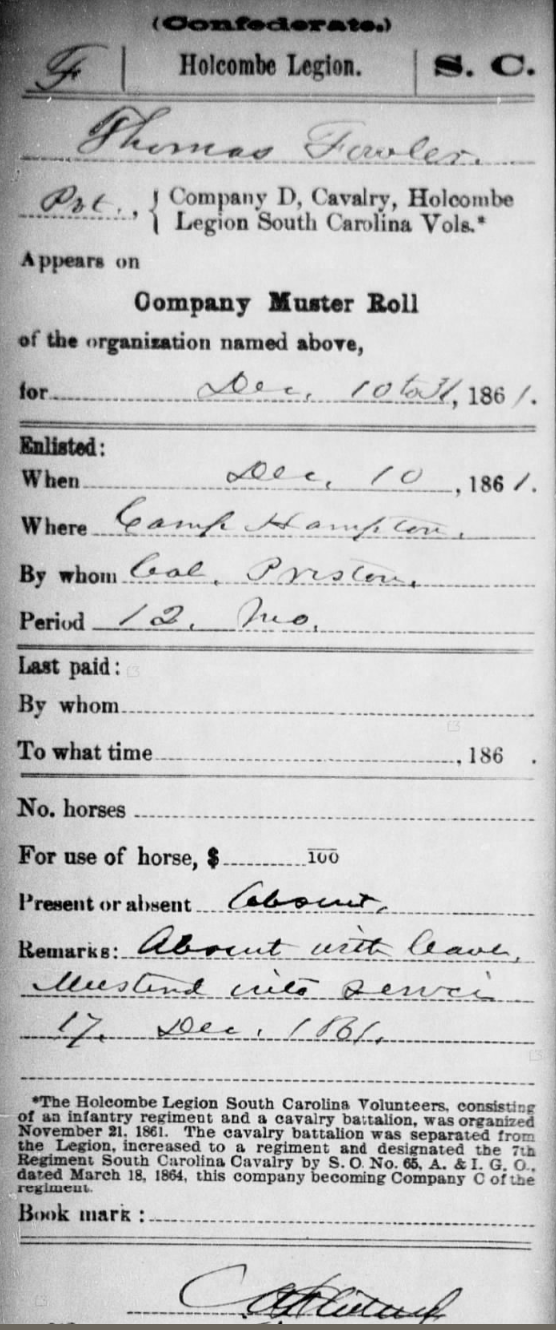 (Confederate.)
F | Holcombe Legion. | S. C.
Thomas Fowler.
Pvt., { Company D, Cavalry, Holcombe
Legion South Carolina Vols.*
Appears on
Company Muster Roll
of the organization named above,
for Dec. 10 to 31, 1861.
Enlisted:
When Dec. 10, 1861.
Where Camp Hampton.
By whom Col. Preston.
Period 12. Mo.
Last paid:
By whom
To what time , 186 .
No. horses
For use of horse, $ 100
Present or absent Absent.
Remarks: Absent with leave.
Mustered into service
17. Dec. 1861.
*The Holcombe Legion South Carolina Volunteers, consisting
of an infantry regiment and a cavalry battalion, was organized
November 21, 1861. The cavalry battalion was separated from
the Legion, increased to a regiment and designated the 7th
Regiment South Carolina Cavalry by S. O. No. 65, A. & I. G. O.,
dated March 18, 1864, this company becoming Company C of the
regiment.
Book mark: